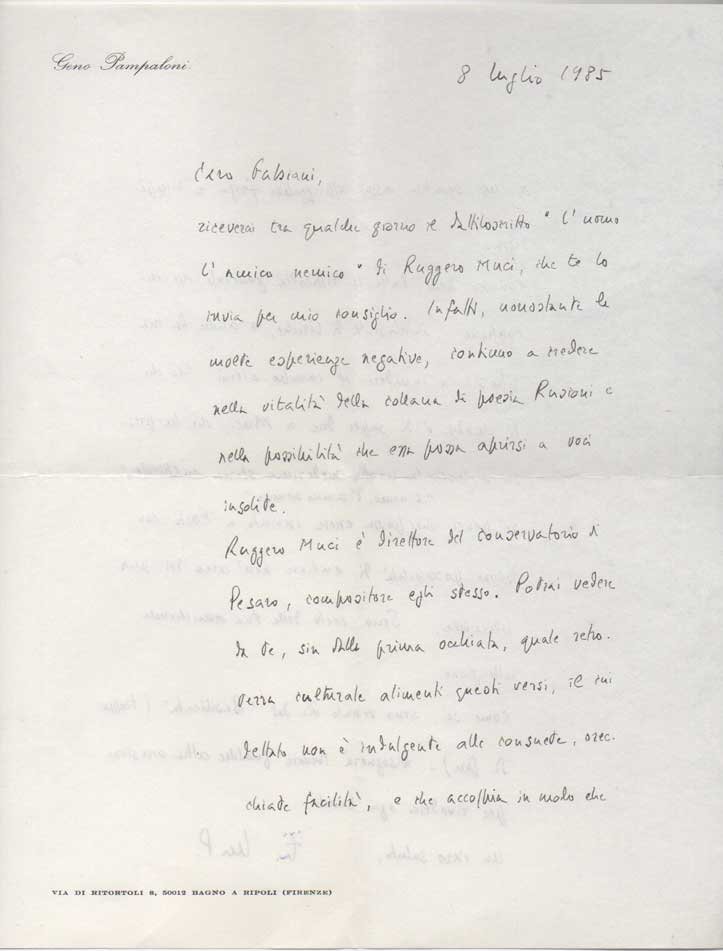 Geno Pampaloni
8 luglio 1985
Caro Fabiani,
riceverai tra qualche giorno il dattiloscritto " L'uomo
l'amico nemico " di Ruggero Muci, che te lo
invia per mio consiglio. Infatti, nonostante le
molte esperienze negative, continuo a credere
nella vitalità della collana di poesia Rusconi e
nella possibilità che essa possa aprirsi a voci
insolite.
Ruggero Muci è direttore del conservatorio di
Pesaro, compositore egli stesso. Potrai vedere
da te, sin dalla prima occhiata, quale retro-
terra culturale alimenti questi versi, il cui
dettato non è indulgente alle consuete, orec-
chiate facilità, e che accoppia in modo che
VIA DI RITORTOLI 8, 50012 BAGNO A RIPOLI (FIRENZE)